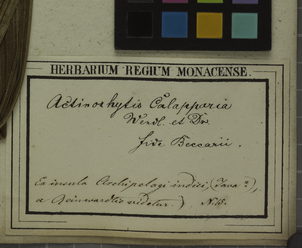 HERBARIUM REGIUM MONACENSE.
Actinorhytis Calapparia
Wendl. et Dr.
fide Beccari.
Ex insula Archipelagi indici (Java?),
a Reinwardtio videtur.).